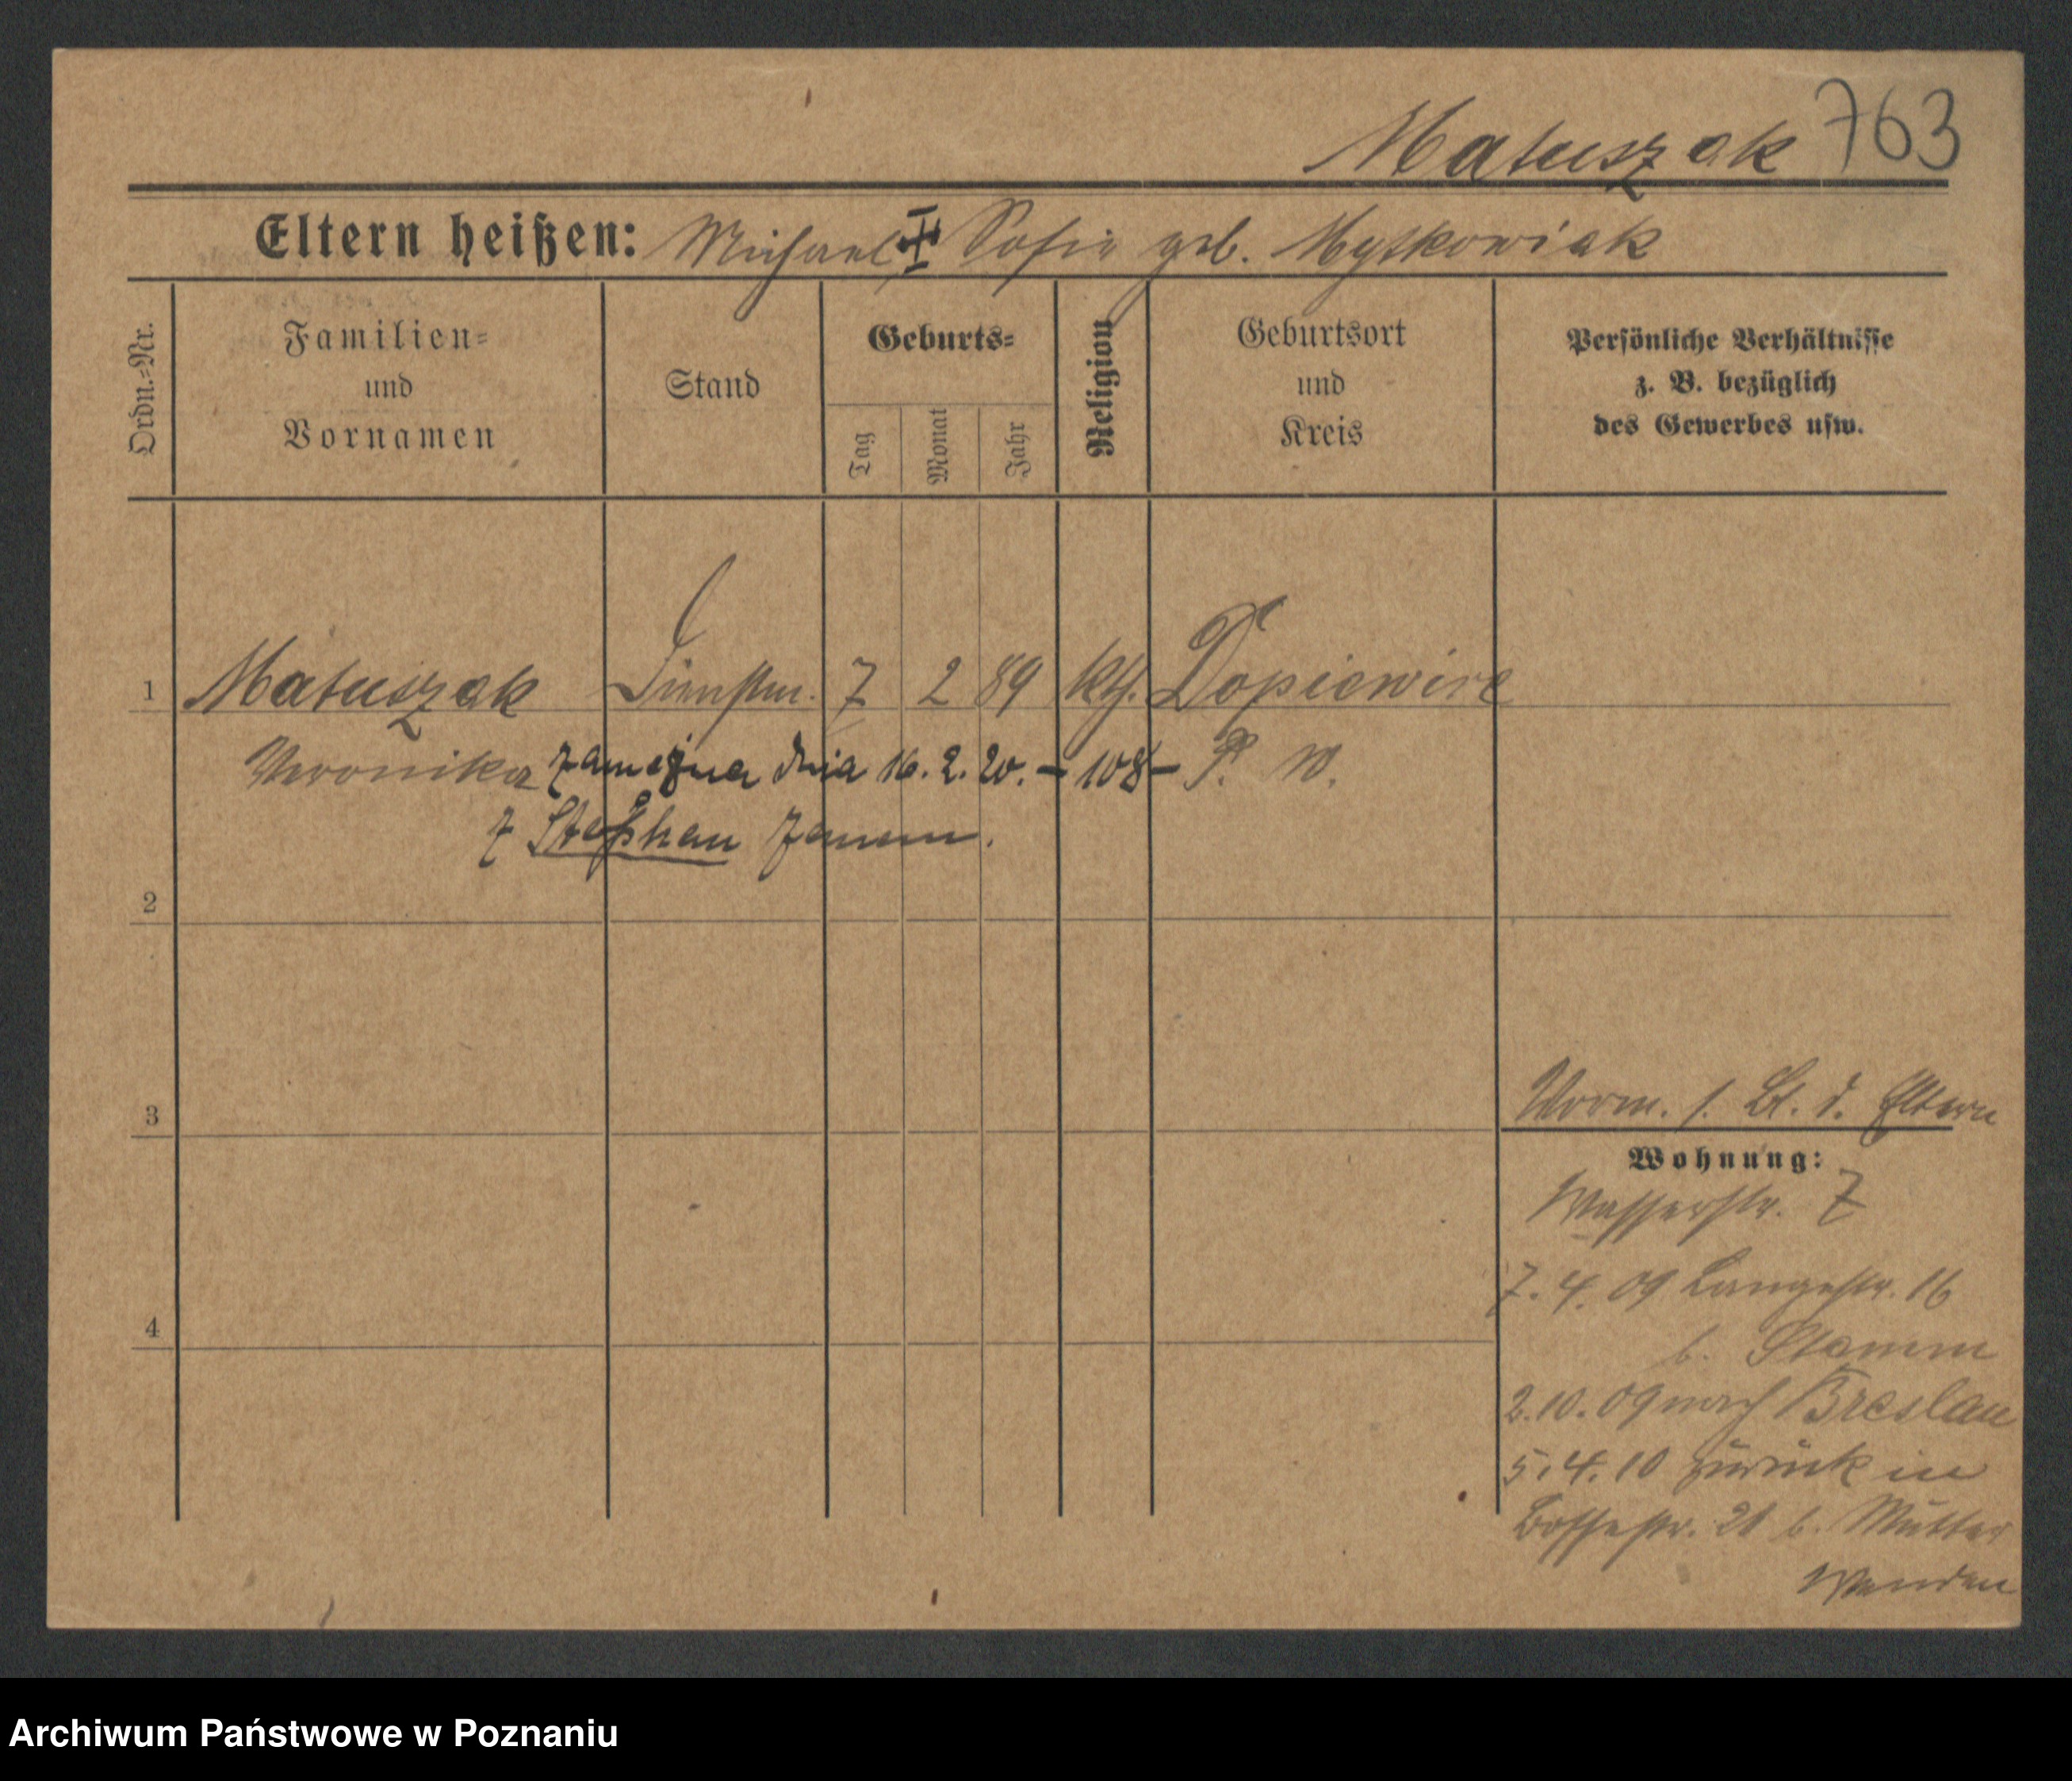 Matuszak 763
Eltern heißen: Michael Sofie geb. Mytkowiak
Ordn.-Nr.
Familien-
und
Vornamen
Stand
Geburts-
Tag
Monat
Jahr
Religion
Geburtsort
und
Kreis
Persönliche Verhältnisse
z. B. bezüglich
des Gewerbes usw.
1 Matuszak Dienstm. 7 2 89 kth. Dopiewiec
Veronika zamężna dnia 16. 2. 20. - 108 - P. W.
z Stephan zanem.
2
3
Vorm. s. Bl. d. Eltern
Wohnung:
Wasserstr. 7
7. 4. 09 Langestr. 16
4
b. Stamm
2. 10. 09 nach Breslau
5. 4. 10 zurück in
21 b. Mutter
Wenden
Archiwum Państwowe w Poznaniu